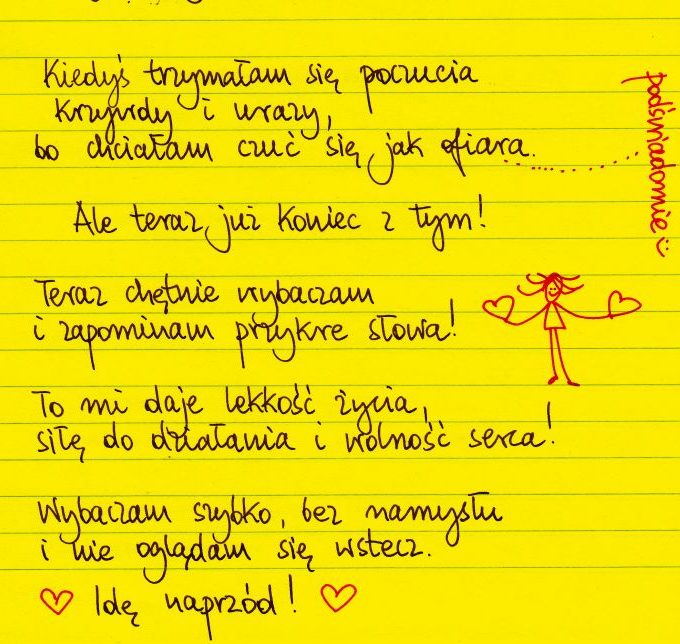 Kiedyś trzymałam się poczucia
krzywdy i urazy,
bo chciałam czuć się jak ofiara.
podświadomie
Ale teraz już koniec z tym!
Teraz chętnie wybaczam
i zapominam przykre słowa!
To mi daje lekkość życia,
siłę do działania i wolność serca!
Wybaczam szybko, bez namysłu
i nie oglądam się wstecz.
Idę naprzód!